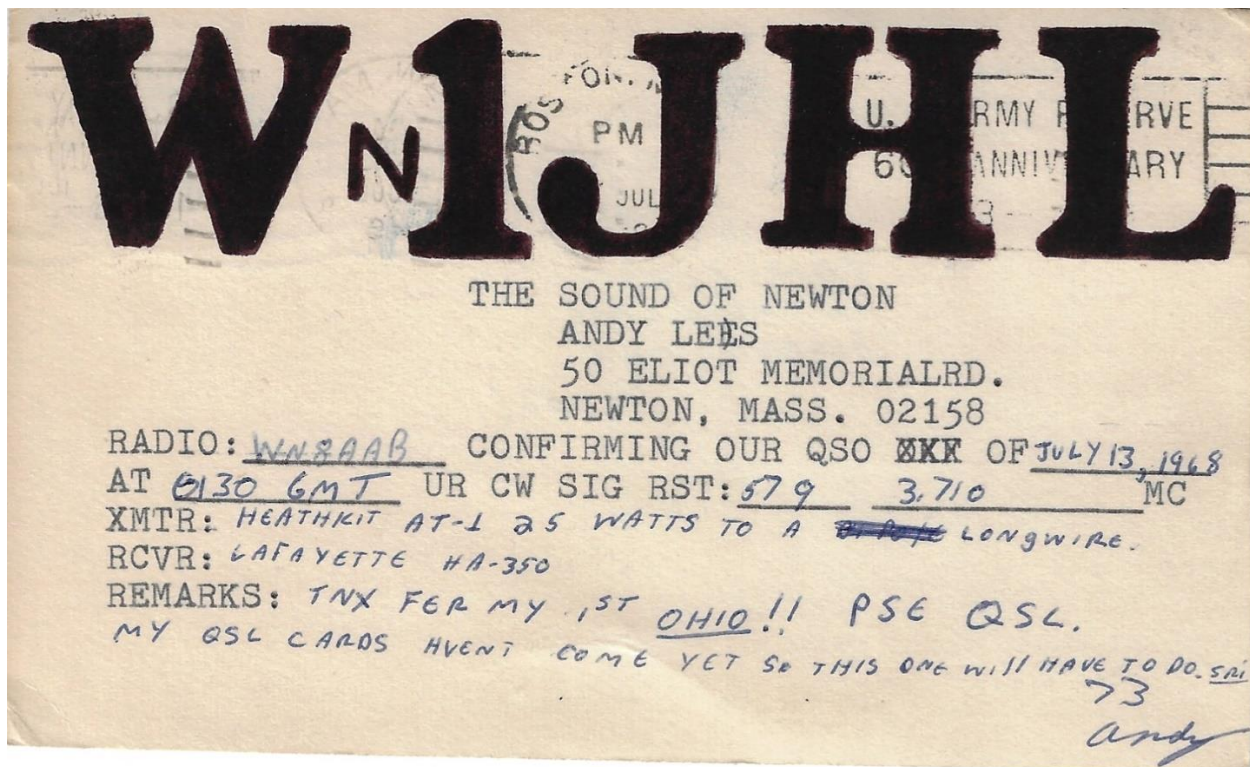 WN1JHL
BOSTON, M
PM
JUL
U. RMY R RVE
60 ANNIV ARY
THE SOUND OF NEWTON
ANDY LEES
50 ELIOT MEMORIALRD.
NEWTON, MASS. 02158
RADIO: WN8AAB CONFIRMING OUR QSO XXX OF JULY 13, 1968
AT 0130 GMT UR CW SIG RST: 579 3.710 MC
XMTR: HEATHKIT AT-1 25 WATTS TO A LONGWIRE.
RCVR: LAFAYETTE HA-350
REMARKS: TNX FER MY 1ST OHIO!! PSE QSL.
MY QSL CARDS HVENT COME YET SO THIS ONE WILL HAVE TO DO. SRI
73
Andy